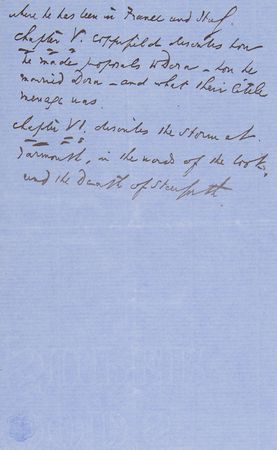 where he has been in France and Italy.
Chapter V. Copperfield describes how
he made proposals to Dora - how he
married Dora - and what their little
menage was.
Chapter VI. describes the storm at
Yarmouth, in the words of the book,
and the Death of Steerforth.